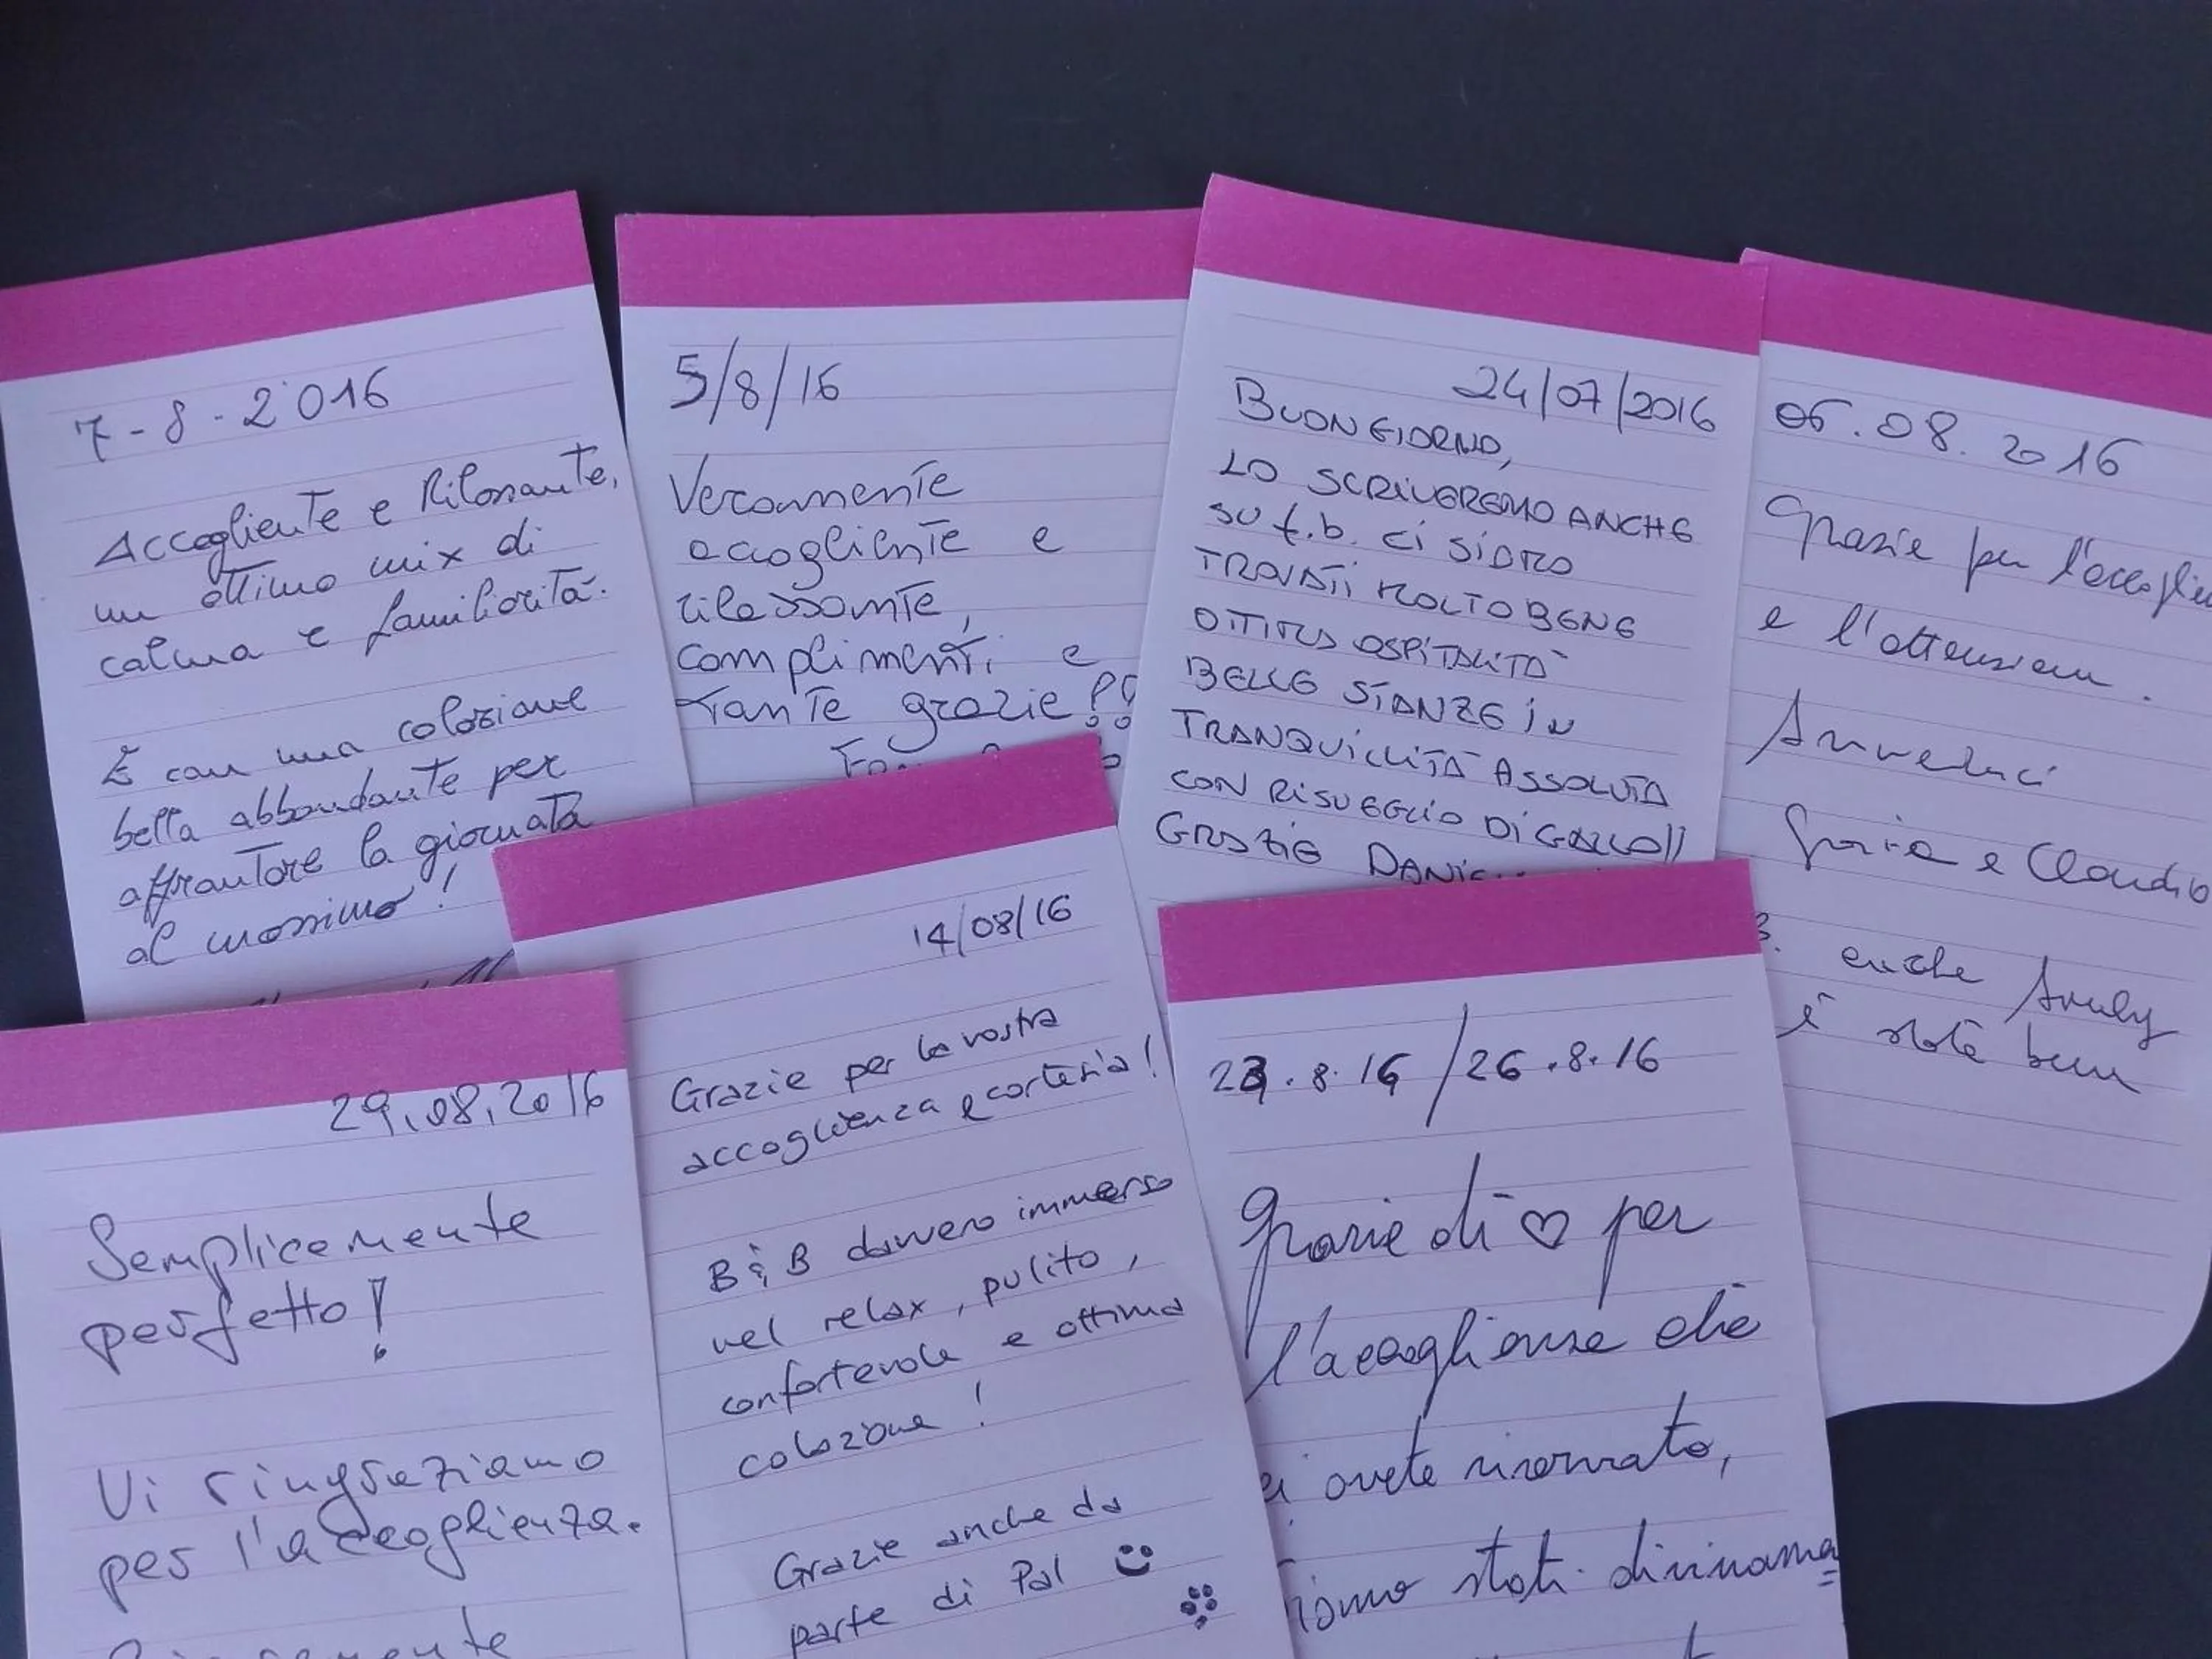 7-8-2016
Accogliente e Rilassante,
un ottimo mix di
calma e familiarità.
E con una colazione
bella abbondante per
affrontare la giornata
al massimo!
5/8/16
Veramente
accogliente e
rilassante,
complimenti e
tante grazie!!
24/07/2016
BUONGIORNO,
LO SCRIVEREMO ANCHE
SU f.b. CI SIAMO
TROVATI MOLTO BENE
OTTIMA OSPITALITÀ
BELLE STANZE IN
TRANQUILLITÀ ASSOLUTA
CON RISVEGLIO DI GALLO!!
GRAZIE
06.08.2016
Grazie per
e l'attenzione.
Arrivederci
e Claudio
anche
è stata bene
29.08.2016
Semplicemente
perfetto!
Vi ringraziamo
per l'accoglienza.
14/08/16
Grazie per la vostra
accoglienza e cortesia!
B&B davvero immerso
nel relax, pulito,
confortevole e ottima
colazione!
Grazie anche da
parte di Pal
.8.16/26.8.16
Grazie di ♡ per
l'accoglienza che
ci avete riservato,
stati divinamen